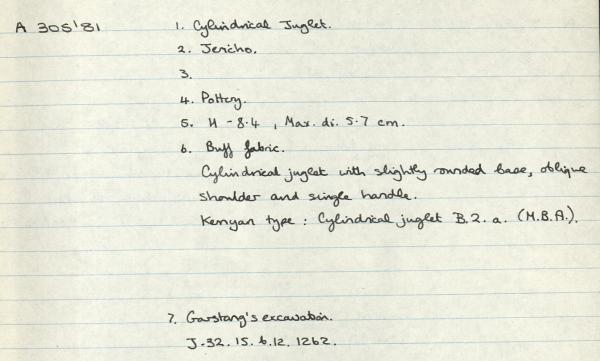 A 305'81
1. Cylindrical Juglet.
2. Jericho.
3.
4. Pottery.
5. H - 8.4 , Max. di. 5.7 cm.
6. Buff fabric.
Cylindrical juglet with slightly rounded base, oblique
shoulder and single handle.
Kenyan type : Cylindrical juglet B.2.a. (M.B.A.).
7. Garstang's excavation.
J.32.15.6.12.1262.